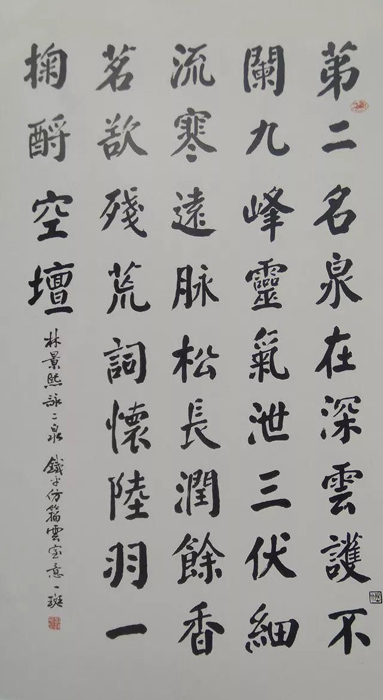 第二名泉在深雲護不
闌九峰靈氣泄三伏細
流寒遠脉松長潤餘香
茗欲殘荒詞懷陸羽一
掬酹空壇
林景熙詠二泉 鐵仿雲室意一斑